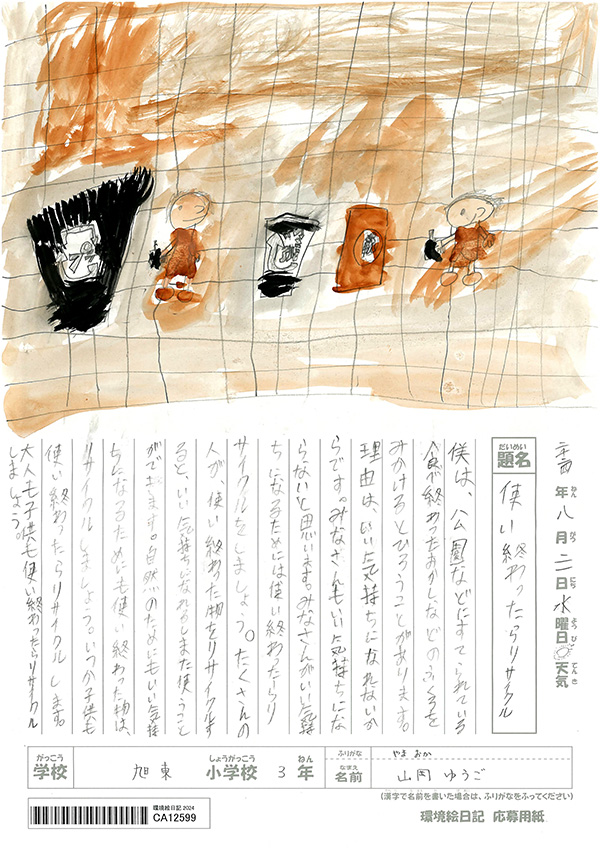 二〇二四年八月二一日水曜日 天気
だいめい
題名
使い終わったらリサイクル
僕は、公園などにすてられている
食べ終わったおかしなどのふくろを
みかけるとひろうことがあります。
理由は、いい気持ちになれないか
らです。みなさんもいい気持ちにな
らないと思います。みなさんがいい気持
ちになるためには使い終わったらリ
サイクルをしましょう。たくさんの
人が、使い終わった物をリサイクルす
ると、いい気持ちになれるしまた使うこと
ができます。自然のためにもいい気持
ちになるためにも使い終わった物は、
リサイクルしましょう。いつか子供も
使い終わったらリサイクルします。
大人も子供も使い終わったらリサイクル
しましょう。
がっこう
学校
旭東
しょうがっこう
小学校
3
ねん
年
ふりがな
やまおか
なまえ
名前
山岡ゆうご
(漢字で名前を書いた場合は、ふりがなをふってください)
環境絵日記2024
CA12599
環境絵日記 応募用紙